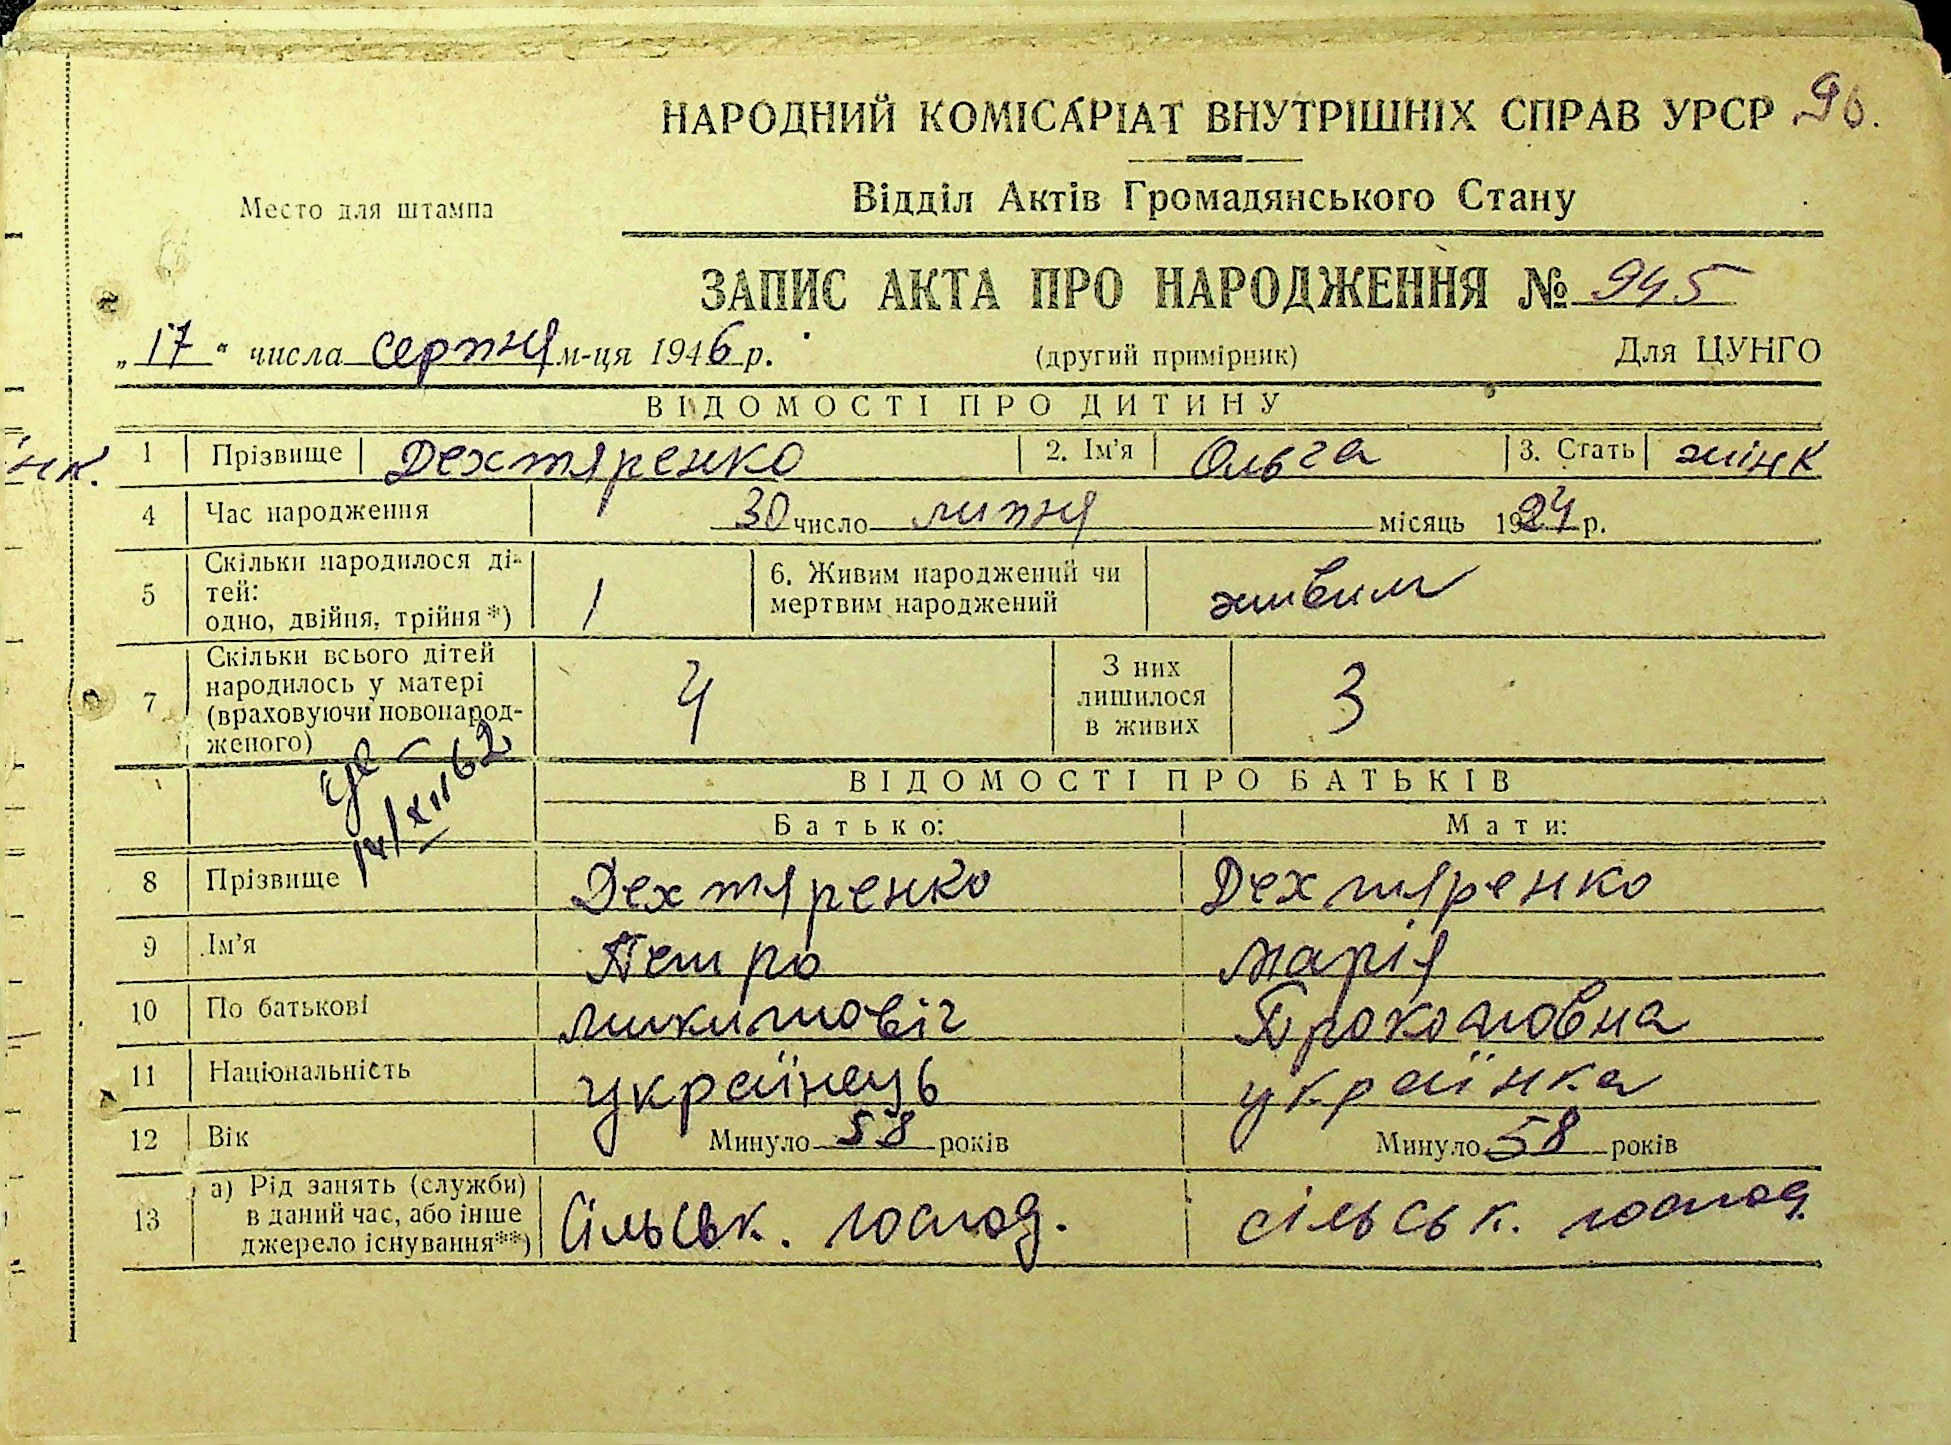 НАРОДНИЙ КОМІСАРІАТ ВНУТРІШНІХ СПРАВ УРСР 90.
Место для штампа
Відділ Актів Громадянського Стану
ЗАПИС АКТА ПРО НАРОДЖЕННЯ № 945
„ 17 “ числа серпня м-ця 1946 р. (другий примірник) Для ЦУНГО
ВІДОМОСТІ ПРО ДИТИНУ
нк. 1 Прізвище Дехтяренко 2. Ім'я Ольга 3. Стать жінк
4 Час народження 30 число липня місяць 1924 р.
5 Скільки народилося ді-
тей:
одно, двійня, трійня *) 1 6. Живим народжений чи
мертвим народжений живим
7 Скільки всього дітей
народилось у матері
(враховуючи новонарод-
женого) 4 З них
лишилося
в живих 3
14/XII 62
ВІДОМОСТІ ПРО БАТЬКІВ
Батько: Мати:
8 Прізвище Дехтяренко Дехтяренко
9 Ім'я Петро Марія
10 По батькові Микитовіч Прокоповна
11 Національність українець українка
12 Вік Минуло 58 років Минуло 58 років
13 а) Рід занять (служби)
в даний час, або інше
джерело існування**) Сільськ. господ. сільськ. господ.